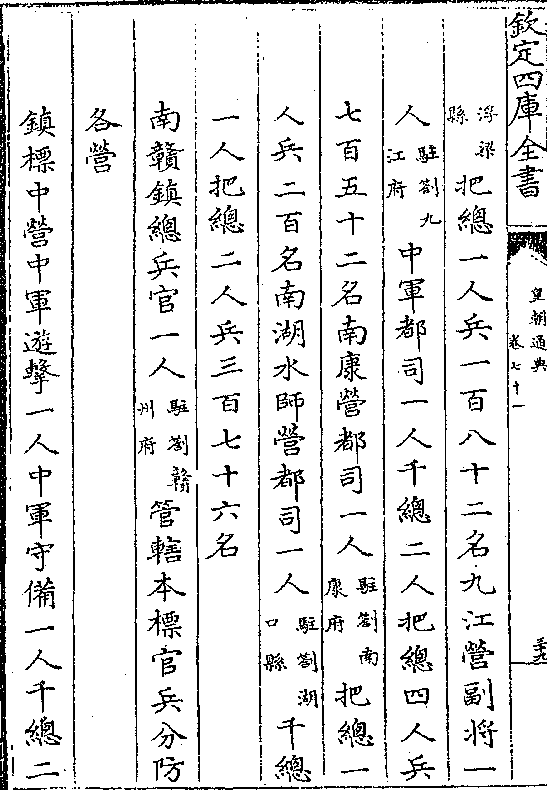 欽定四庫全書
皇朝通典
卷七十一
浮梁縣把總一人兵一百八十二名九江營副將一
人駐劄九江府中軍都司一人千總二人把總四人兵
七百五十二名南康營都司一人駐劄南康府把總一
人兵二百名南湖水師營都司一人駐劄湖口縣千總
一人把總二人兵三百七十六名
南贛鎮總兵官一人駐劄贛州府管轄本標官兵分防
各營
鎮標中營中軍遊擊一人中軍守備一人千總二